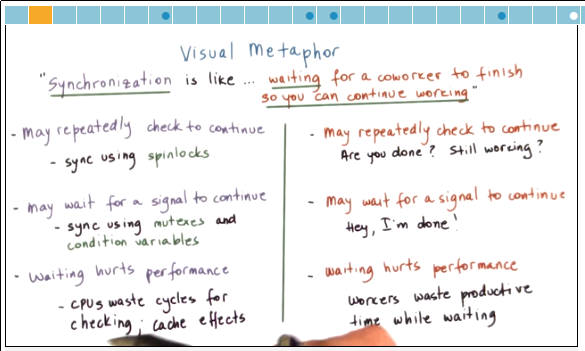 Visual Metaphor
"Synchronization is like ... waiting for a coworker to finish
so you can continue working"
- may repeatedly check to continue
- sync using spinlocks
- may wait for a signal to continue
- sync using mutexes and
condition variables
- waiting hurts performance
- CPUs waste cycles for
checking; cache effects
- may repeatedly check to continue
Are you done? Still working?
- may wait for a signal to continue
Hey, I'm done!
- waiting hurts performance
workers waste productive
time while waiting